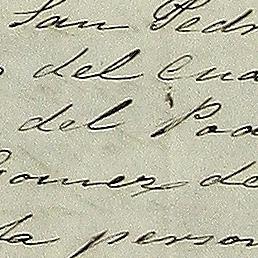 San Pedr
del Cua
del Poa
Gomez de
la person